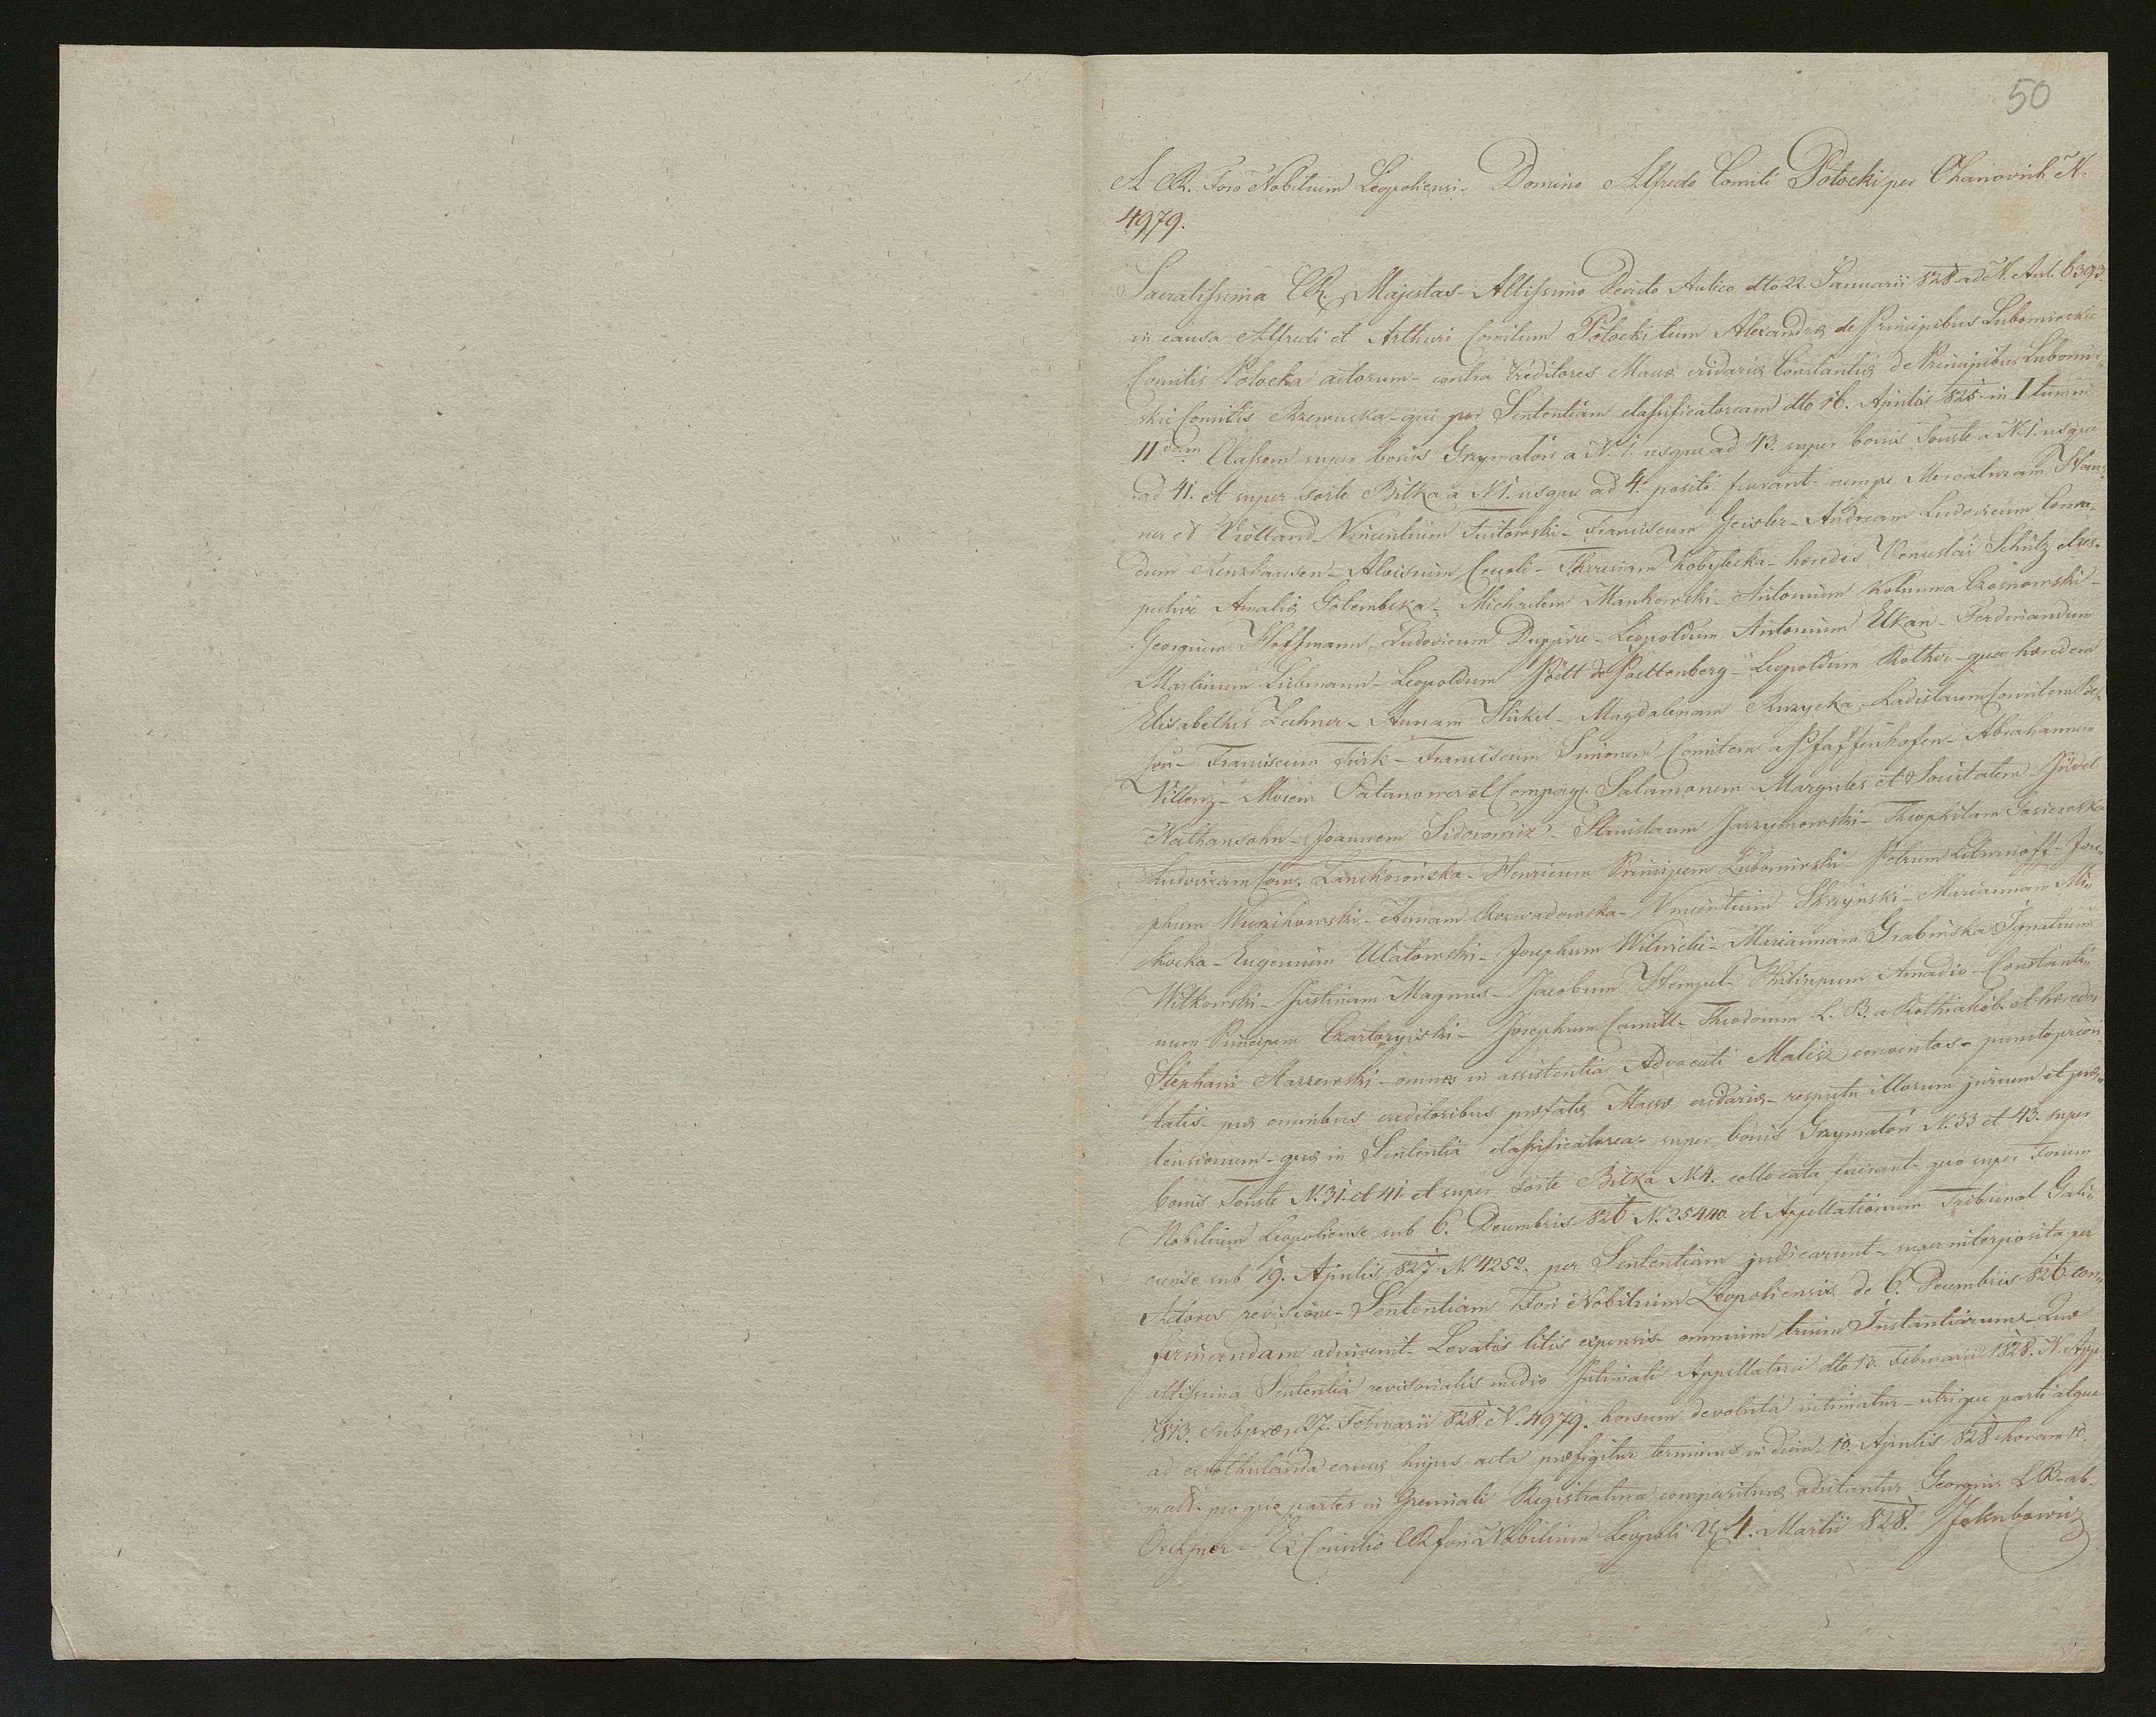 50
A CR. Foro Nobilium Leopoliensi. Domino Alfredo Comiti Potocki per N.
4979.
Sacratissima CR. Majestas - Altissimo Decreto Aulico dto 22. Januarii 828 ad N. Aul. 6393.
in causa Alfredi et Arthuri Comitum Potocki tum Alexandræ de Principibus Lubomirskie
Comitis Potocka actorum - contra Creditores Massæ cridariæ Constantiæ de Principibus Lubomir„
skie Comitis Rzewuska - qui per Sententiam classificatoriam dto 16. Aprilis 825. in I tum in
II dam Classem super bonis Grzymałów a N. 1. usque ad 43. super bonis Touste a N. 1. usque
ad 41. et super sorte Bilka a N 1. usque ad 4. positi fuerant - nempe Mercaturam
ner et - Vincentium - Franciscum Geisler - Andream Ludovicum Conra„
dum - Aloisium Ceccoli - Theresiam Kobylecka - hæredes Venceslai Schütz et res„
pective Amaliæ Golembska - Michaelem Mankowski - Antonium Kolumna Czosnowski -
Georgium Hoffmann - Ludovicum - Leopoldum Antonium Elkan - Ferdinandum
Martinum Liebmann - Leopoldum Pött de Poettenberg - Leopoldum Rother - qua hæredem
Elisabethis Lechner - Annam - Magdalenam Ruzycka - Ladislaum Comitem
Franciscum Türk - Franciscum Simonem Comitem a Pfaffenhofen - Abrahamum
et Compag. Salamonem Margules et Societatem - Jüdel
Nathansohn - Joannem Sidorowicz - Stanislaum - Theophilam Gasiewska
Ludovicam Com. Lanckorońska - Henricum Principem Lubomirski - Petrum - Jose„
phum - Annam Rozwadowska - Vincentium Skrzyński - Mariannam Mi„
kocka - Eugenium Ulatowski - Josephum Witwicki - Mariannam Grabinska, Ignatium
Witkowski - Justinam Magnus - Jacobum Hempel - Philippum Amadio - Constanti„
num Principem Czartoryiski - Josephum Camill - Theodorum L. B. a et hæredes
Stephani - omnes in assistentia Advocati Malisz conventos - puncto priori„
tatis - præ omnibus creditoribus præfatæ Massæ cridariæ - respectu illorum jurium et præ„
tensionum - quæ in Sententia classificatoria - super bonis Grzymałów N. 33 et 43. super
bonis Touste N. 31. et 41. et super sorte Bilka N 4. collocata fuerant - quo super Forum
Nobilium Leopoliense sub 6. Decembris 826 N. 25440. et Appellationum Tribunal Gali„
ciense sub 19. Aprilis 827. N. 4252. per Sententiam judicarunt - super interposita per
Actores revisione - Sententiam Fori Nobilium Leopoliensis de 6. Decembris 826 con„
firmandam adinvenit - Levatis litis expensis omnium trium Instantiarum - Quæ
altissima Sententia revisorialis medio Intimati Appellatorii dto 13. Februarii 1828. N. App.
1813. sub præs. 27. Februarii 828. N. 4979. horsum devoluta intimatur - utrique parti atque
ad exrothulanda causæ hujus acta præfigitur terminus in diem 10. Aprilis 828 horam 10.
mat. pro quo partes in Gremiali Registratura compariturae adcitantur. Georgius L. B. ab
Oechsner - Ex Consilio CR Fori Nobilium Leopoli 4. Martii 828. Jakubowicz